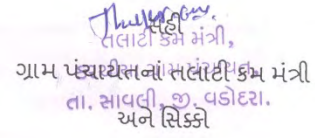 સહી
તલાટી કમ મંત્રી,
ગ્રામ પંચાયતનાં તલાટી કમ મંત્રી
તા. સાવલી, જી. વડોદરા.
અને સિક્કો